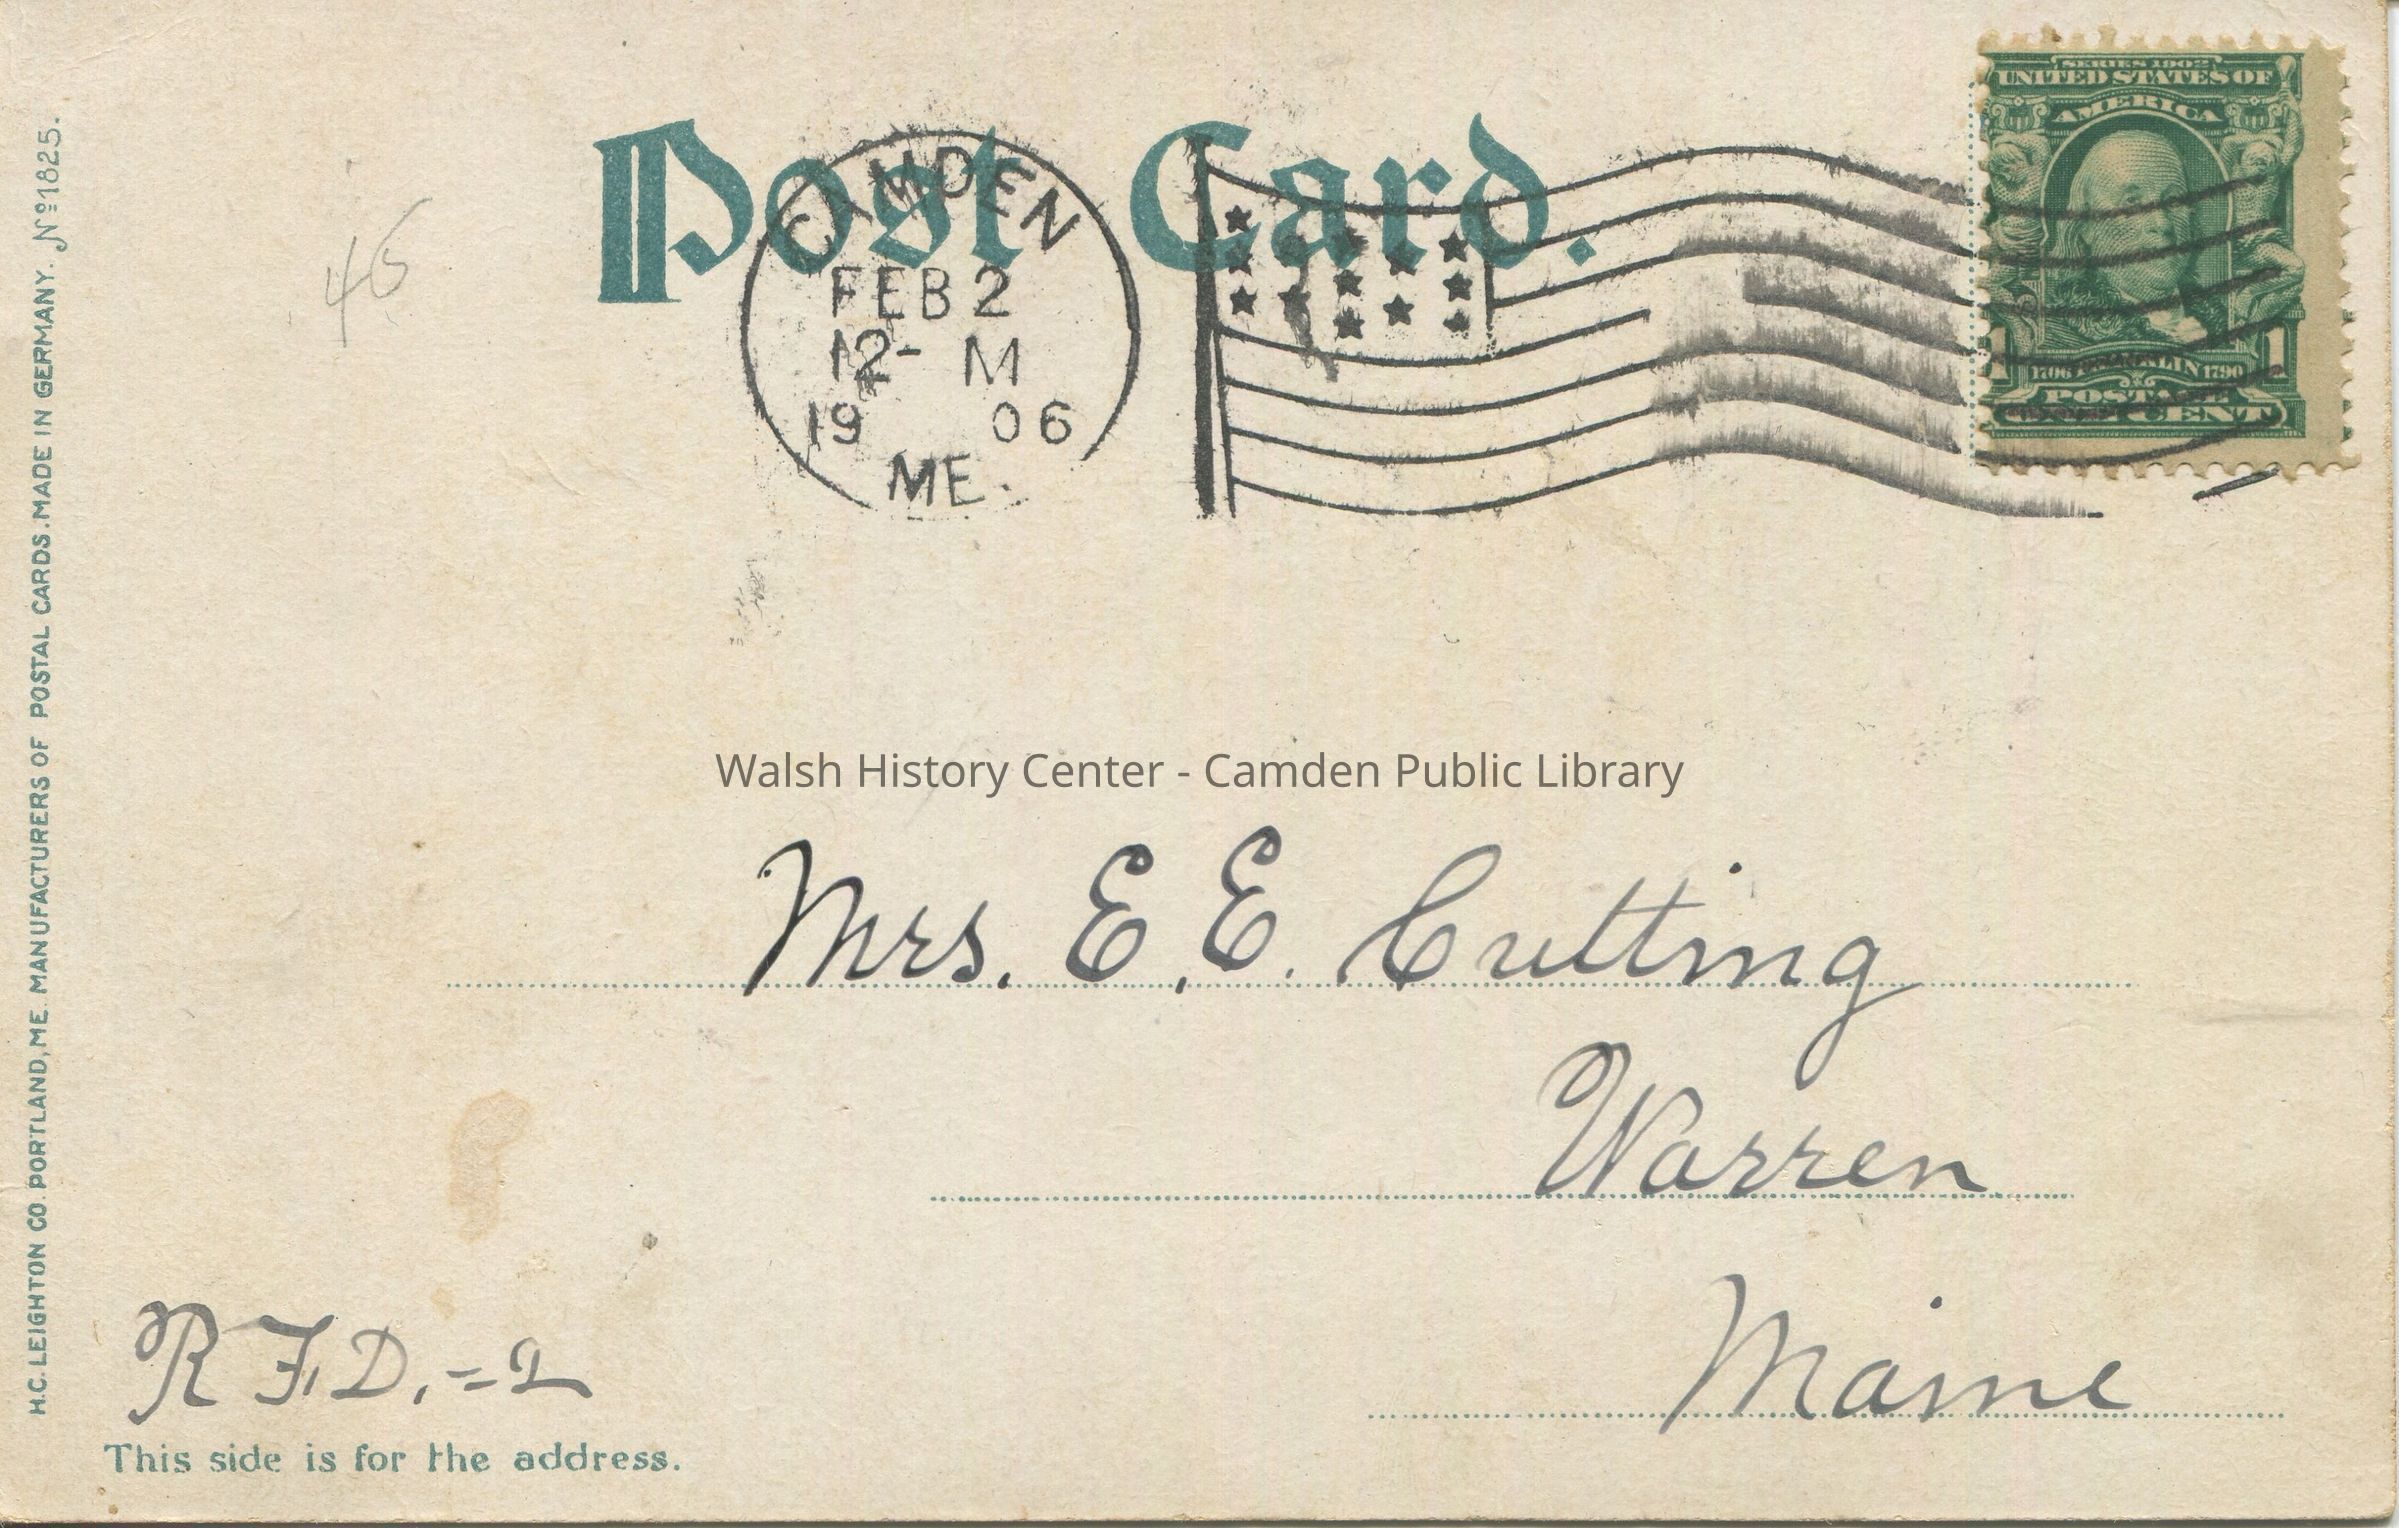 Post Card.
CAMDEN
FEB 2
12- M
19 06
ME.
SERIES 1902
UNITED STATES OF
AMERICA
1706 FRANKLIN 1790
1 1
POSTAGE
ONE CENT
H.C. LEIGHTON CO. PORTLAND, ME. MANUFACTURERS OF POSTAL CARDS. MADE IN GERMANY. Nº 1825.
Walsh History Center - Camden Public Library
Mrs. E. E. Cutting
Warren
Maine
R.F.D. = 2
This side is for the address.